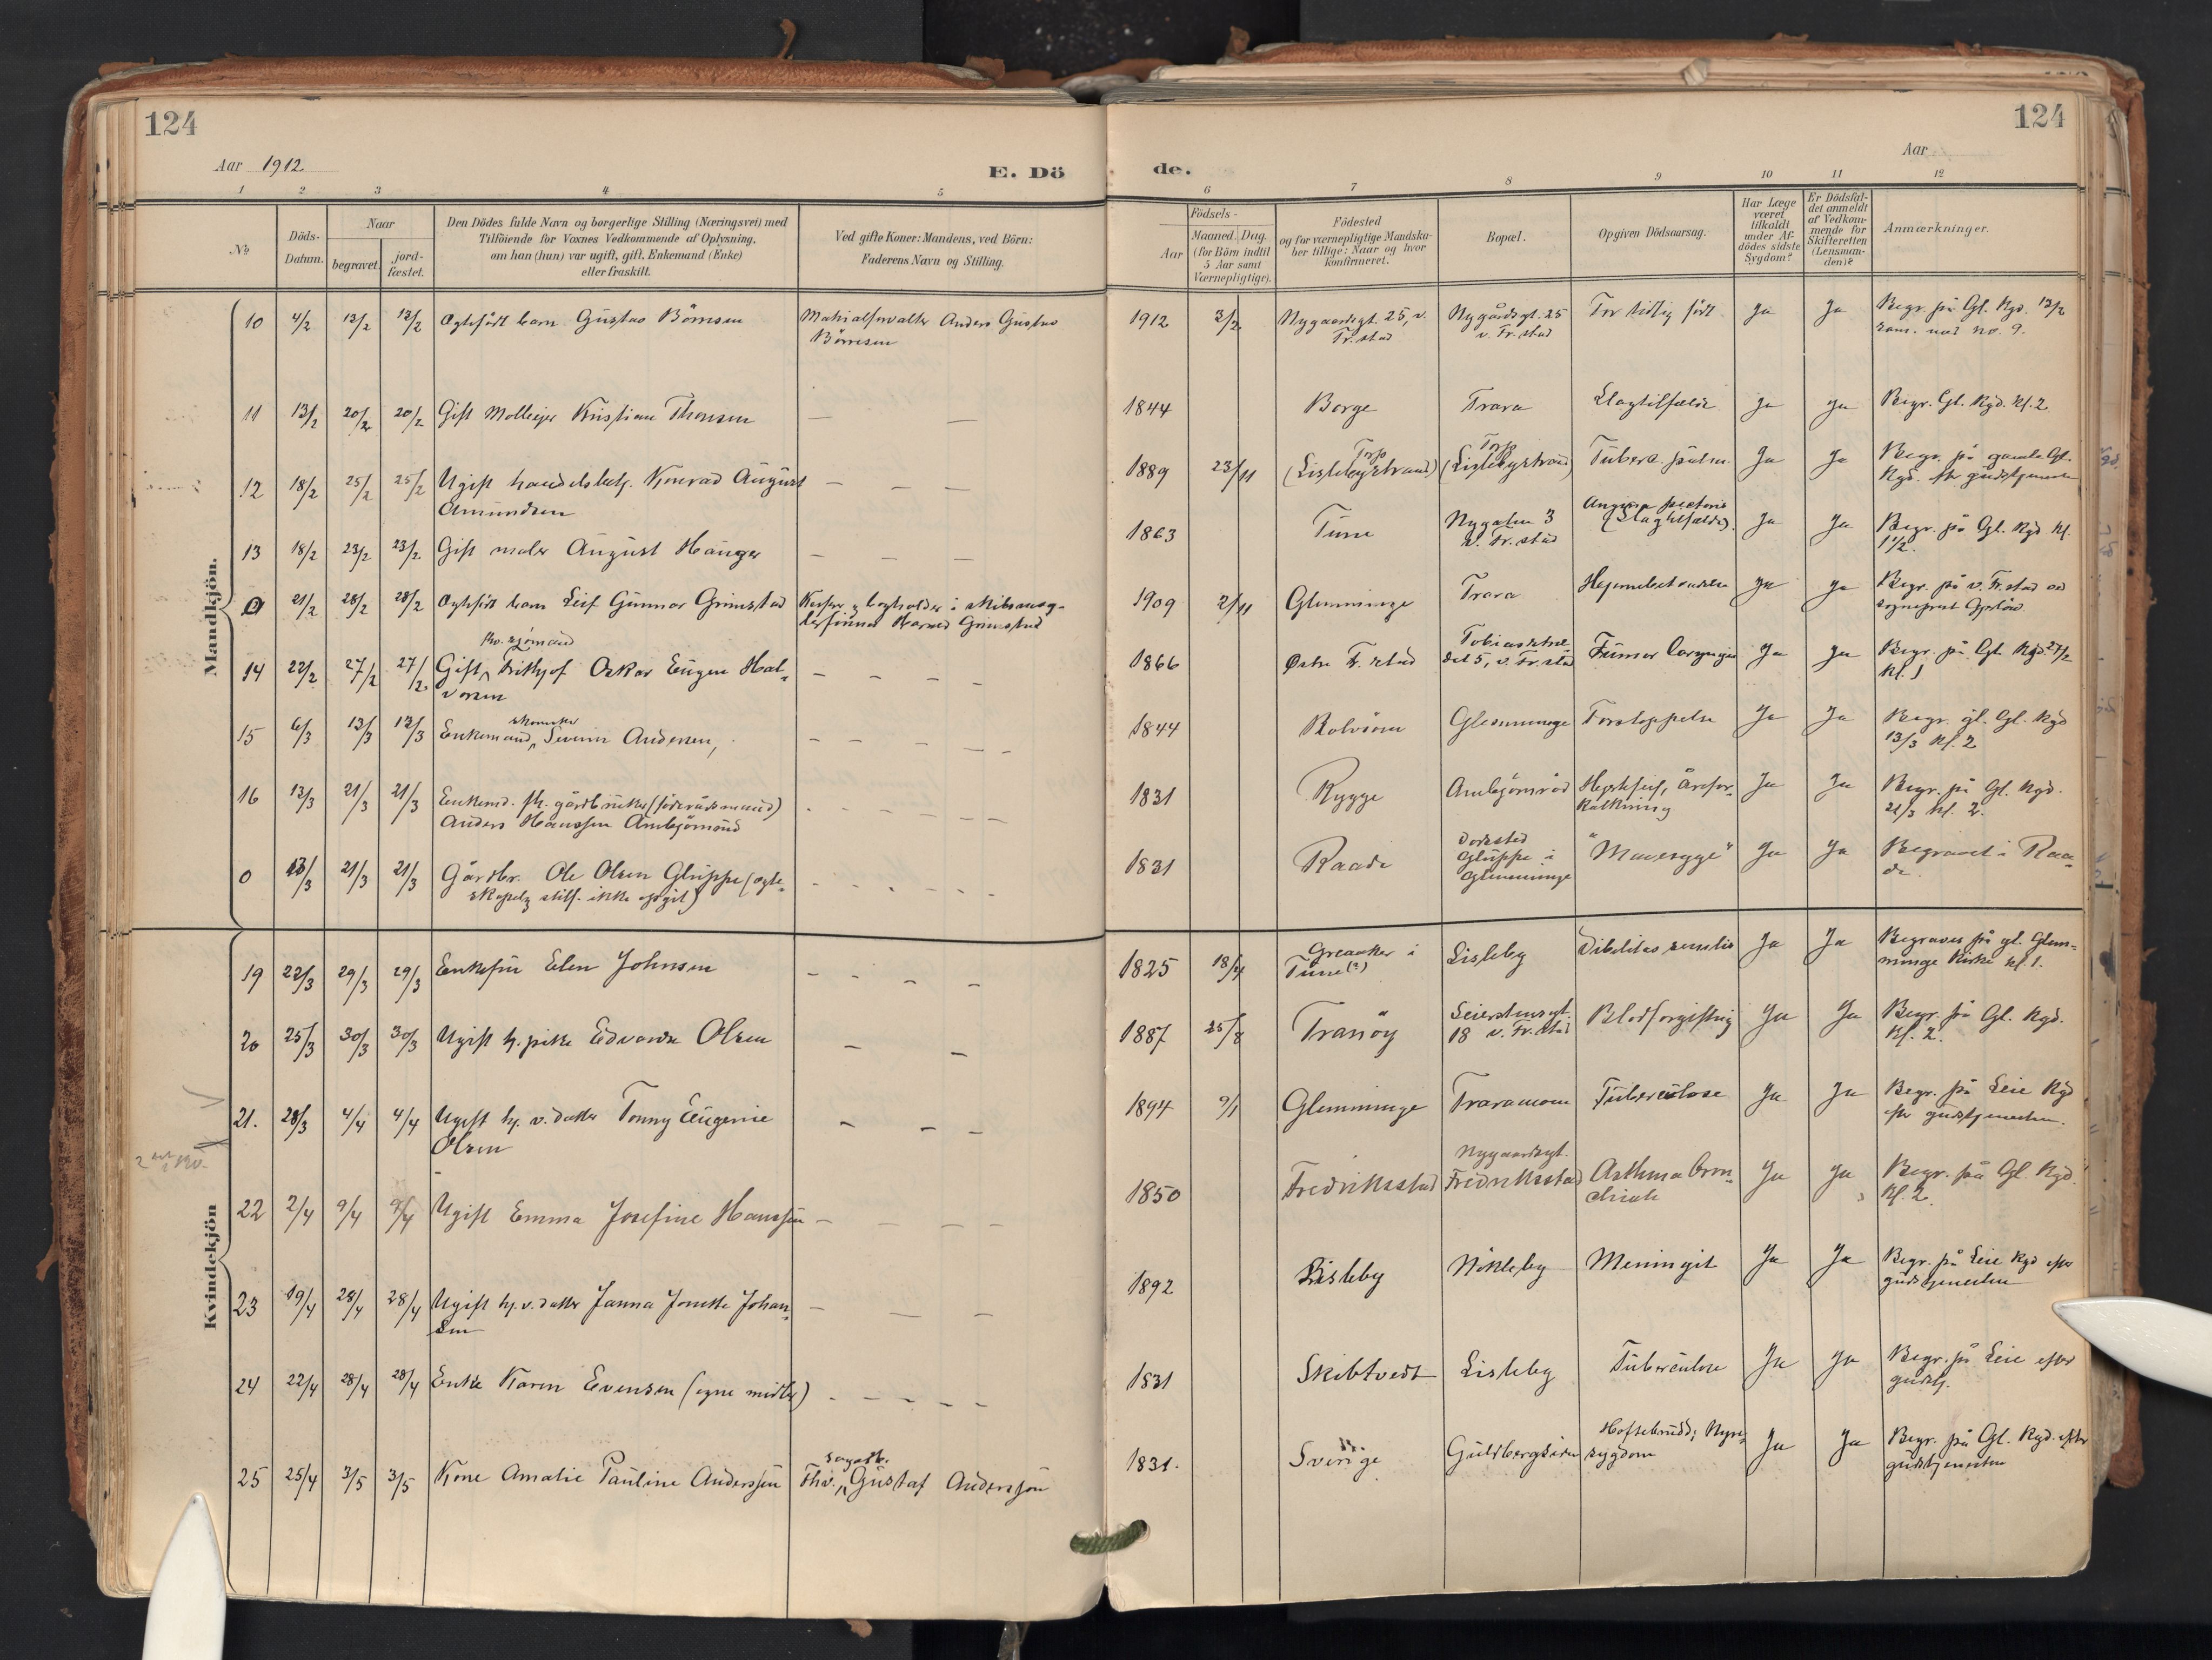 124
124
Aar 1912
E. Dö
de.
Aar
1 2 3 4 5 6 7 8 9 10 11 12
No
Döds-
Datum.
Naar
begravet.
jord-
fæstet.
Den Dödes fulde Navn og borgerlige Stilling (Næringsvei) med
Tilföiende for Voxnes Vedkommende af Oplysning,
om han (hun) var ugift, gift, Enkemand (Enke)
eller fraskilt.
Ved gifte Koner: Mandens, ved Börn:
Faderens Navn og Stilling.
Födsels-
Aar
Maaned. Dag.
(for Börn indtil
5 Aar samt
Værnepligtige).
Födested
og for værnepligtige Mandska-
ber tillige: Naar og hvor
konfirmeret.
Bopæl.
Opgiven Dödsaarsag.
Har Læge
været
tilkaldt
under Af-
dödes sidste
Sygdom?
Er Dödsfal-
det anmeldt
af Vedkom-
mende for
Skifteretten
(Lensman-
den)?
Anmærkninger.
Mandkjön.
10 4/2 13/2 13/2 Ægtefödt barn Gustav Börresen
Anders Gustav
Börresen
1912 3/2 Nygaardsgt. 25, v.
Fr.stad
Nygårdsgt. 25
v. Fr.stad
For tidlig född Ja Ja Begr. på Gl. Kgd. 13/2
sam. med no. 9.
11 13/2 20/2 20/2 Gift Kristian Thoresen — —
1844 Borge Trara Slagtilfælde Ja Ja Begr. Gl. Kgd. Kl. 2
12 18/2 25/2 25/2 Ugift handelsbetj. Konrad August
Amundsen — — —
1889 23/11 Torp
(Lislebystrand)
Torp
(Lislebystrand)
Tuberc. pulm. Ja Ja Begr. på gamle Gl.
Kgd. efter gudstjenesten
13 18/2 23/2 23/2 Gift maler August Hauger — — —
1863 Tune Nygaten 3
v. Fr.stad
Angina pectoris
(Slagtilfælde). Ja Ja Begr. på Gl. Kgd Kl.
1 1/2.
0 21/2 28/2 28/2 Ægtefödt barn Leif Gunnar Grimstad
Grimstad
1909 2/11 Glemminge Trara Ja Ja Begr. på v. Fr.stad
14 22/2 27/2 27/2 Gift, Frithjof Oskar Eugen Hal-
vorsen — — — —
1866 Østre Fr.stad
5, v. Fr.stad
Tumor laryngis Ja Ja Begr. på Gl. Kgd 27/2
Kl. 1
15 6/3 13/3 13/3 skomaker
Enkemand, Severin Andersen, — — — — —
1844 Rolvsöen Glemminge Forstoppelse Ja Ja Begr. gl. Gl. Kgd
13/3 Kl. 2
16 13/3 21/3 21/3 Enkemd. fh. gårdbruker (föderådsmand)
Anders Hanssen Ambjörnröd — — — — —
1831 Rygge Ambjörnröd Hjertefeil, Årefor-
kalkning Ja Ja Begr. på Gl. Kgd.
21/3 Kl. 2.
0 13/3 21/3 21/3 Gårdbr. Ole Olsen Gluppe (ægte-
skapelig still. ikke opgit) — — — — —
1831 Raade Dödssted
Gluppe i
Glemminge
"Mavesyge" Ja Ja Begravet i Raa-
de.
Kvindekjön
19 22/3 29/3 29/3 Enkefru Elen Johnsen — — — —
1825 18/4 Greaaker i
Tune (?)
Lisleby Debilitas senilis Ja Ja Begraves på gl. Glem-
minge Kirke kl. 1.
20 25/3 30/3 30/3 Ugift tj. pike Edvarda Olsen — —
1887 25/8 Tranöy
18 v. Fr.stad
Blodforgiftnig Ja Ja Begr. på Gl. Kgd.
Kl. 2.
21. 28/3 4/4 4/4 Ugift hj. v. datter Tonny Eugenie
Olsen — — —
1894 9/1 Glemminge Traramoen Tuberculose Ja Ja Begr. på Leie Kgd
efter gudstjenesten.
22 2/4 9/4 9/4 Ugift Emma Josefine Hanssen — — — —
1850 Fredriksstad Nygaardsgt.
Fredriksstad
Asthma bron-
chiale Ja Ja Begr. på Gl. Kgd.
Kl. 2.
23 19/4 28/4 28/4 Ugift hj. v. datter Janna Jonette Johan-
sen — — —
1892 Lisleby Nökleby Meningit Ja Ja Begr. på Leie Kgd efter
gudstjenesten
24 22/4 28/4 28/4 Enke Karen Evensen (egne midler) — — — — —
1831 Skibtvedt Lisleby Tuberculose Ja Ja Begr. på Leie efter
gudstj.
25 25/4 3/5 3/5 Kone Amalie Pauline Anderssen
Fhv. Gustaf Andersson
1831. Sverige Guldbergsiden Hoftebrudd; Nyre-
sygdom Ja Ja Begr. på Gl. Kgd. efter
gudstjenesten